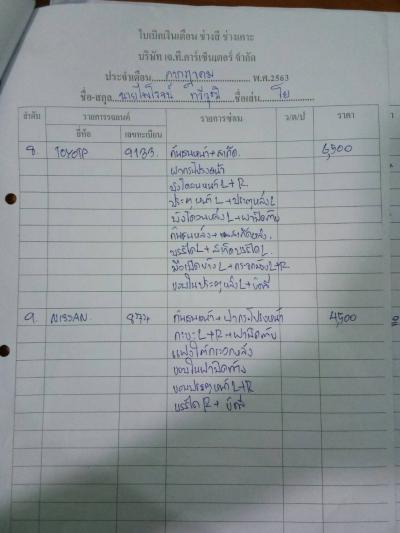 ใบเบิกเงินเดือน ช่างสี ช่างเคาะ
บริษัท เจ.ที.คาร์เซ็นเตอร์ จำกัด
ประจำเดือน กรกฎาคม พ.ศ.2563
ชื่อ-สกุล นายไพโรจน์ ทวีวุฒิ ชื่อเล่น โย
ลำดับ รายการรถยนต์ รายการซ่อม ว/ด/ป ราคา
ยี่ห้อ เลขทะเบียน
8. TOYOTA 9133 กันชนหน้า + สเกิ๊ต. 6,500
ฝากระโปรงหน้า
บังโคลนหน้า L+R
ประตูหน้า L + ประตูหลัง L
บังโคลนหลัง L + ฝาปิดท้าย
กันชนหลัง + สเกิ๊ตหลัง.
บรรได L + สเกิ๊ตบรรได L.
มือเปิดข้าง L + กระจกมองข้าง L+R
ขอบในประตูหลัง L + ขัดสี
9. NISSAN 874 กันชนหน้า + ฝากระโปรงหน้า 4,500
กะบะ L+R + ฝาปิดท้าย
แผงใต้กระจกหลัง
ขอบในฝาปิดท้าย
ขอบประตูหน้า L+R
บรรได R + ขัดสี